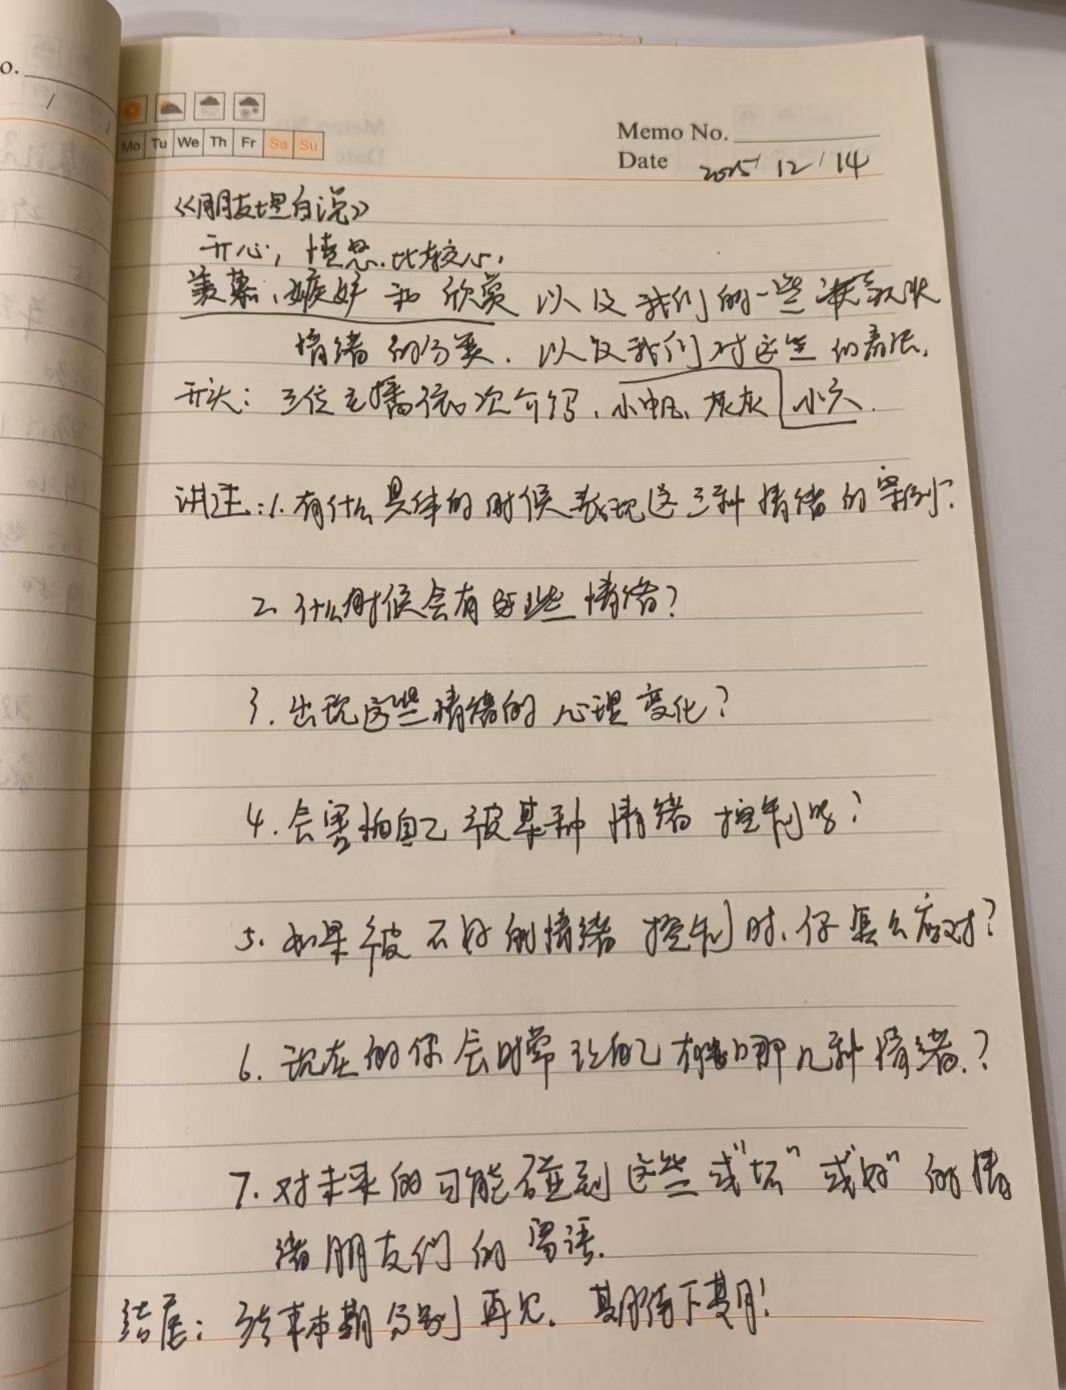 Mo Tu We Th Fr Sa Su
Memo No.
Date 2025/12/14
《朋友坦白说》
开心，愤怒，比较心，
羡慕、嫉妒和欣赏 以及我们的一些
情绪的分类，以及我们对这些的看法，
开头：三位主播依次介绍，小帆，灰灰 小六.
讲述：1. 有什么具体的时候表现这三种情绪的案例？
2. 什么时候会有这些情绪？
3. 出现这些情绪的心理变化？
4. 会害怕自己被某种情绪控制吗？
5. 如果被不好的情绪控制时，你怎么应对？
6. 现在的你会时常 自己有哪几种情绪？
7. 对未来的可能碰到这些或"坏"或"好"的情
绪朋友们的寄语.
结尾：结束本期分别再见. 期待下期！